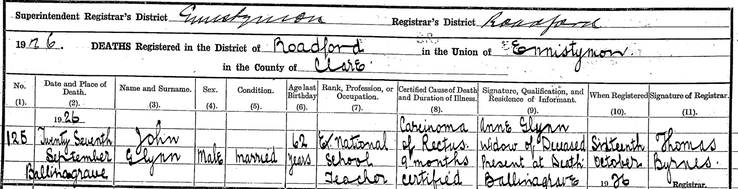 Superintendent Registrar's District Ennistymon Registrar's District Roadford
1926 DEATHS Registered in the District of Roadford in the Union of Ennistymon
in the County of Clare
No. Date and Place of Death. Name and Surname. Sex. Condition. Age last Birthday Rank, Profession, or Occupation. Certified Cause of Death and Duration of Illness. Signature, Qualification, and Residence of Informant. When Registered Signature of Registrar.
(1). (2). (3). (4). (5). (6). (7). (8). (9). (10). (11).
1926 Carcinoma Anne Glynn
125 Twenty Seventh John 62 Ex. National of Rectus. Widow of Deceased Sixteenth Thomas
September Glynn Male married years School 9 months Present at Death October Byrnes.
Ballinagrave Teacher certified Ballinagrave 1926 Registrar.